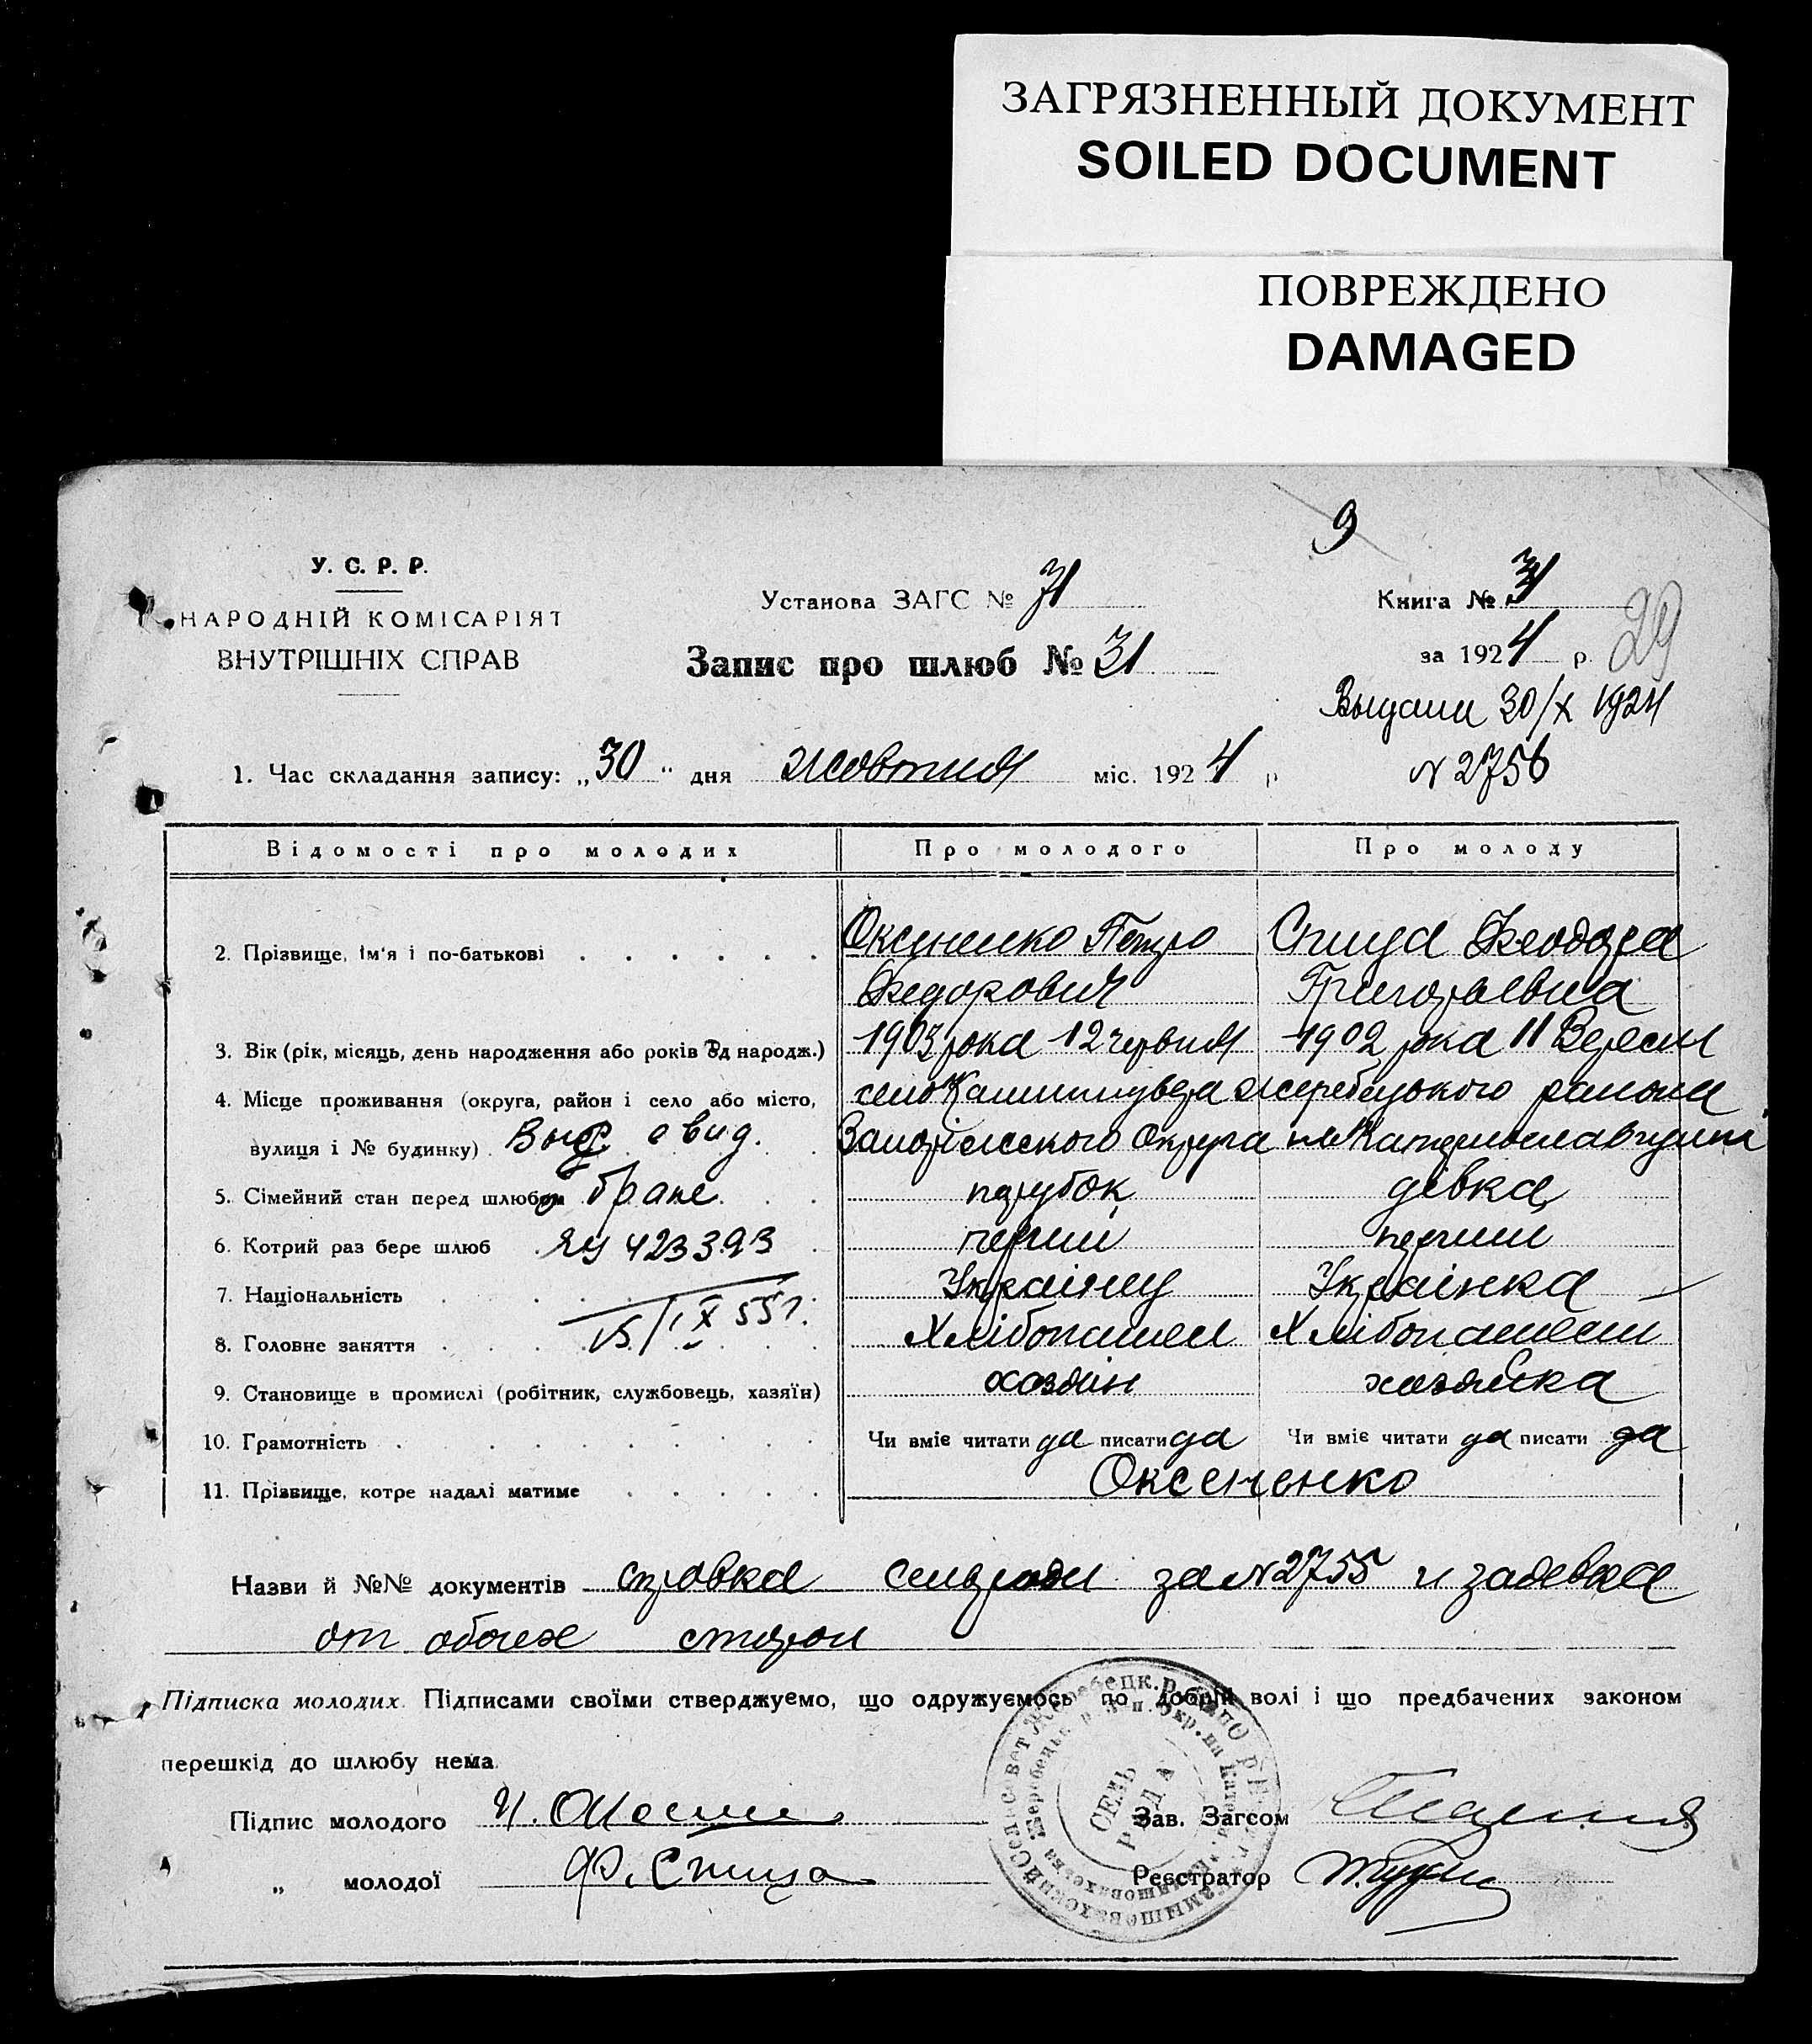 ЗАГРЯЗНЕННЫЙ ДОКУМЕНТ
SOILED DOCUMENT
ПОВРЕЖДЕНО
DAMAGED
9
У. С. Р. Р.
НАРОДНІЙ КОМІСАРІЯТ
ВНУТРІШНІХ СПРАВ
Установа ЗАГС № 31
Запис про шлюб № 31
Книга № 31
за 1924 р.
29
Выдана 30/X 1924
N 2756
1. Час складання запису: „30“ дня жовтня міс. 1924 р
Відомості про молодих
Про молодого
Про молоду
2. Прізвище, ім'я і по-батькові
Оксененко Петро
Федорович
Спица Феодора
Григорьевна
3. Вік (рік, місяць, день народження або років од народж.)
1903 рока 12 червня
1902 рока 11 Вересня
4. Місце проживання (округа, район і село або місто,
вулиця і № будинку)
село Жеребецького района
Запоріжского Округа на Катеринославщині
Выд. свид.
5. Сімейний стан перед шлюбом
браке
парубок
дівка
6. Котрий раз бере шлюб
423393
перший
перший
7. Національність
Украінец
Украінка
15/IX 55 г.
8. Головне заняття
Хлібопашец
Хлібопашец
9. Становище в промислі (робітник, службовець, хазяїн)
хозяін
хозяйка
10. Грамотність
Чи вміє читати да писати да
Чи вміє читати да писати да
11. Прізвище, котре надалі матиме
Оксененко
Назви й №№ документів справка сельради за N 2755 и
от обоих сторон
Підписка молодих. Підписами своїми стверджуємо, що одружуємось по добрій волі і що предбачених законом
перешкід до шлюбу нема.
Підпис молодого
Зав. Загсом
„ молодої Ф. Спица
Реєстратор
СЕЛЬ
РАДА